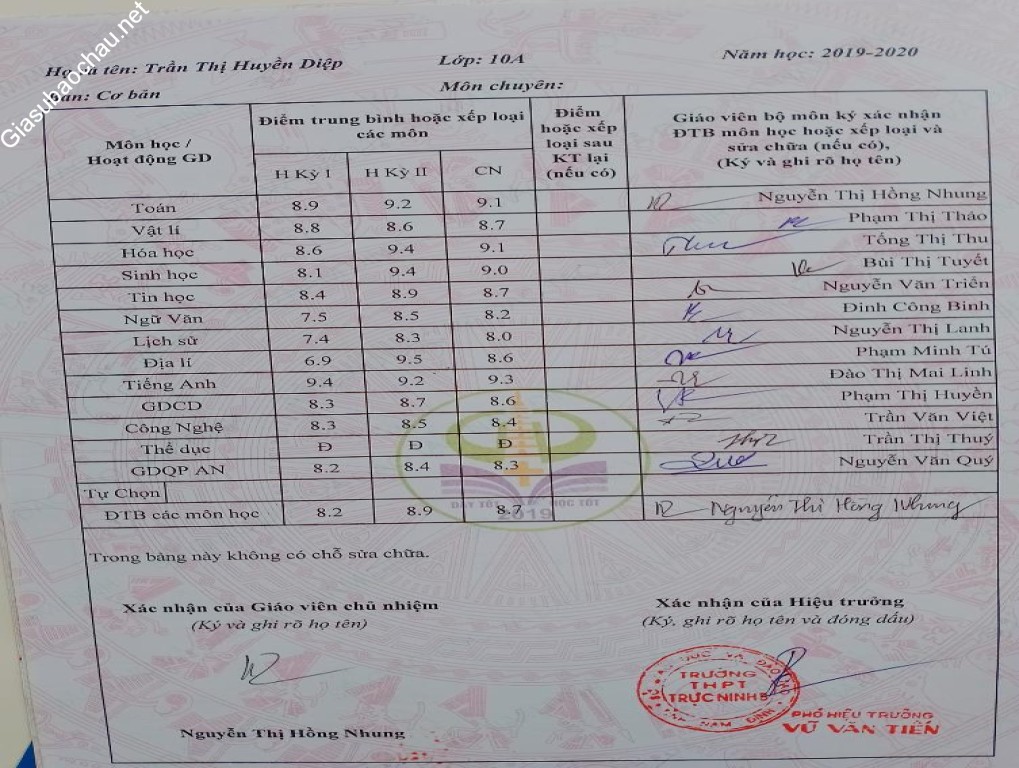 Giasubaochau.net
Họ và tên: Trần Thị Huyền Diệp Lớp: 10A Năm học: 2019-2020
Ban: Cơ bản Môn chuyên:
Môn học / Hoạt động GD
Điểm trung bình hoặc xếp loại các môn
H Kỳ I H Kỳ II CN
Điểm hoặc xếp loại sau KT lại (nếu có)
Giáo viên bộ môn ký xác nhận ĐTB môn học hoặc xếp loại và sửa chữa (nếu có), (Ký và ghi rõ họ tên)
Toán 8.9 9.2 9.1 Nguyễn Thị Hồng Nhung
Vật lí 8.8 8.6 8.7 Phạm Thị Thảo
Hóa học 8.6 9.4 9.1 Tống Thị Thu
Sinh học 8.1 9.4 9.0 Bùi Thị Tuyết
Tin học 8.4 8.9 8.7 Nguyễn Văn Triển
Ngữ Văn 7.5 8.5 8.2 Đinh Công Bình
Lịch sử 7.4 8.3 8.0 Nguyễn Thị Lanh
Địa lí 6.9 9.5 8.6 Phạm Minh Tú
Tiếng Anh 9.4 9.2 9.3 Đào Thị Mai Linh
GDCD 8.3 8.7 8.6 Phạm Thị Huyền
Công Nghệ 8.3 8.5 8.4 Trần Văn Việt
Thể dục Đ Đ Đ Trần Thị Thuý
GDQP AN 8.2 8.4 8.3 Nguyễn Văn Quý
Tự Chọn
ĐTB các môn học 8.2 8.9 8.7 Nguyễn Thị Hồng Nhung
DẠY TỐT HỌC TỐT
2019
Trong bảng này không có chỗ sửa chữa.
Xác nhận của Giáo viên chủ nhiệm
(Ký và ghi rõ họ tên)
Xác nhận của Hiệu trưởng
(Ký, ghi rõ họ tên và đóng dấu)
TRƯỜNG
THPT
TRỰC NINH B
NAM ĐỊNH
PHÓ HIỆU TRƯỞNG
VŨ VĂN TIẾN
Nguyễn Thị Hồng Nhung